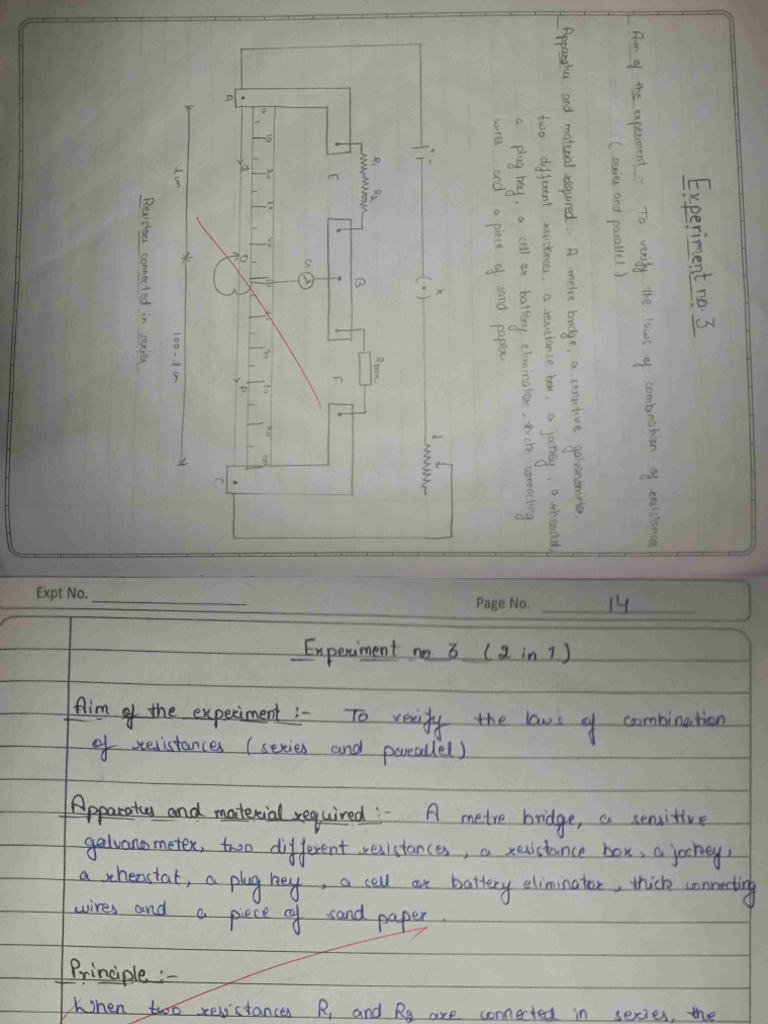 Experiment no. 3
Aim of the experiment :- To verify the laws of combination of resistance
(series and parallel)
Apparatus and material required :- A metre bridge, a sensitive galvanometer,
two different resistances, a resistance box, a jockey, a rheostat,
a plug key, a cell or battery eliminator, thick connecting
wires and a piece of sand paper.
+ -
K
(•)
R1 R2
Rbox
E B F
G
A C
D
l cm 100-l cm
Resistors connected in series
Expt No.
Page No. 14
Experiment no 3 (2 in 1)
Aim of the experiment :- To verify the laws of combination
of resistances (series and parallel)
Apparatus and material required :- A metre bridge, a sensitive
galvanometer, two different resistances, a resistance box, a jockey,
a rheostat, a plug key, a cell or battery eliminator, thick connecting
wires and a piece of sand paper.
Principle :-
When two resistances R1 and R2 are connected in series, the